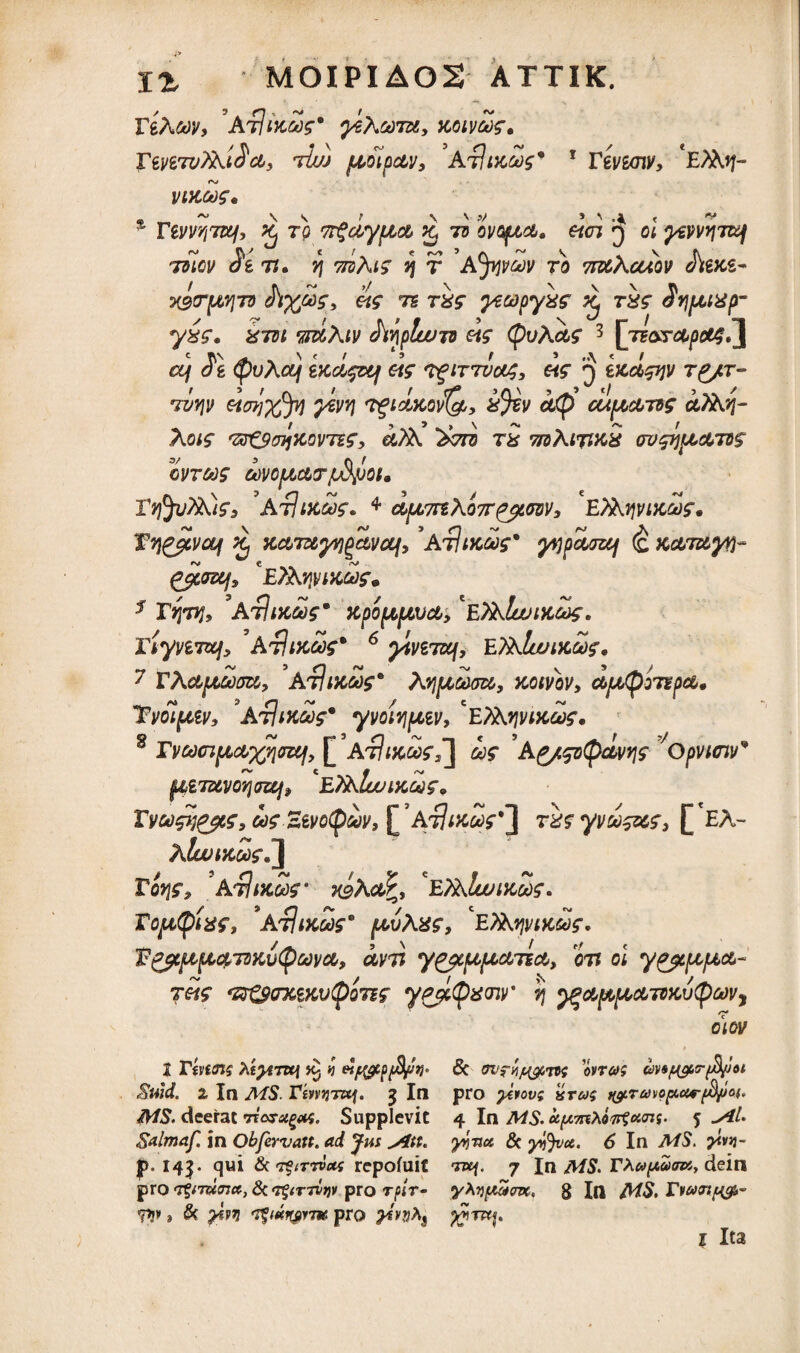 12 ΜΟΙΡΙΔΟΣ ΑΤΤΙΚ.
Γέλων, Ἀττικῶς· γέλωτα, κοινῶς.
Γενετυλλίδα, τὴν μοῖραν, Ἀττικῶς· ¹ Γένεσιν, Ἑλλη-
νικῶς.
² Γεννῆται, καὶ τὸ πρᾶγμα καὶ τὸ ὄνομα. εἰσὶ ἢ οἱ γεννῆται
τοῖον δέ τι. ἡ πόλις ἡ τ Ἀθηνῶν τὸ παλαιὸν διεκε-
κόσμητο διχῶς, εἴς τε τοὺς γεωργοὺς καὶ τοὺς δημιουρ-
γούς. οὗτοι πάλιν διῄρηντο εἰς φυλὰς ³ [τέσσαρας.]
αἱ δὲ φυλαὶ ἑκάσται εἰς τριττύας, εἰς ἢ ἑκάστην τριτ-
τύην εἰσήχθη γένη τριάκοντα, οὐθὲν ἀφ' αἵματος ἀλλή-
λοις προσήκοντες, ἀλλ' ἀπὸ τοῦ πολιτικοῦ συστήματος
ὄντως ὠνομασμένοι.
Γηθυλλὶς, Ἀττικῶς. ⁴ ἀμπελόπρασον, Ἑλληνικῶς.
Γηρᾶναι καὶ καταγηρᾶναι, Ἀττικῶς· γηράσαι καὶ καταγη-
ρᾶσαι, Ἑλληνικῶς.
⁵ Γήτη, Ἀττικῶς· κρόμμυα, Ἑλληνικῶς.
Γίγνεται, Ἀττικῶς· ⁶ γίνεται, Ἑλληνικῶς.
⁷ Γλαμῶσα, Ἀττικῶς· λημῶσα, κοινὸν, ἀμφότερα.
Γνοῖμεν, Ἀττικῶς· γνοίημεν, Ἑλληνικῶς.
⁸ Γνωσιμαχῆσαι, [Ἀττικῶς,] ὡς Ἀριστοφάνης Ὄρνισιν·
μετανοῆσαι, Ἑλληνικῶς.
Γνωστῆρας, ὡς Ξενοφῶν, [Ἀττικῶς·] τοὺς γνώστας, [Ἑλ-
ληνικῶς.]
Γόης, Ἀττικῶς· κόλαξ, Ἑλληνικῶς.
Γομφίους, Ἀττικῶς· μύλους, Ἑλληνικῶς.
Γραμματοκύφωνα, ἀντὶ γραμματέα, ὅτι οἱ γραμμα-
τεῖς προσκεκυφότες γράφουσιν· ἢ γραμματοκύφων,
οἷον
1 Γένεσις λέγεται καὶ ἡ εἱμαρμένη.
Suid. 2 In MS. Γέννηται. 3 In
MS. deerat τέσσαρας. Supplevit
Salmas. in Observatt. ad Jus Att.
p. 143. qui & τριττύας reposuit
pro τριτάσια, & τριττύην pro τρίτ-
την, & γένη τριάκοντα pro γένηλ,
& συστήματος ὄντως ὠνομασμένοι
pro γένους οὕτως κατωνομασμένοι.
4 In MS. ἀμπελόπρασις. 5 Al.
γήτια & γήθυα. 6 In MS. γίνη-
ται. 7 In MS. Γλωμῶσα, dein
γλημῶσα. 8 In MS. Γνωσιμα-
χῆται.
1 Ita